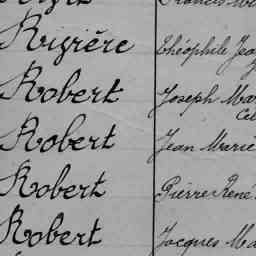 Rivière Théophile Jea
Robert Joseph Mar
Cel
Robert Jean Marie
Robert Pierre René
Robert Jacques Ma